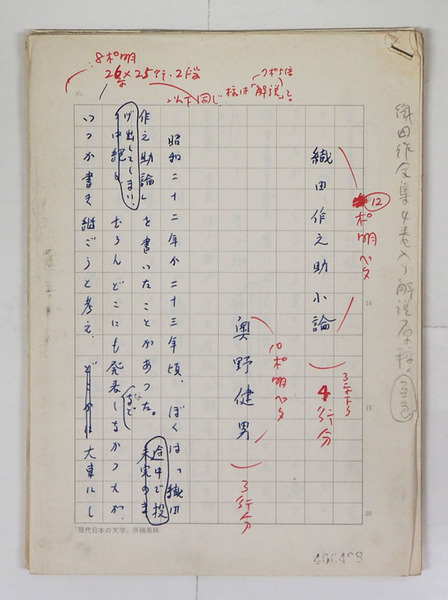 織田作全集4巻入り解説原稿
8ポ明
26字×25行.2段
以下同じ
柱は「解説」と。
織田作之助小論
12
ポ明ベタ
4行分
奥野健男
10ポ明ベタ
3行分
昭和二十二年か二十三年頃、ぼくは「織田
作之助論」を書いたことがあつた。途中で投
げ出してしまい、未完のま
中絶し むろんどこにも発表しなかつたが、
など
いつか書き継ごうと考え、大事にし
10
15
20
「現代日本の文学」原稿用紙